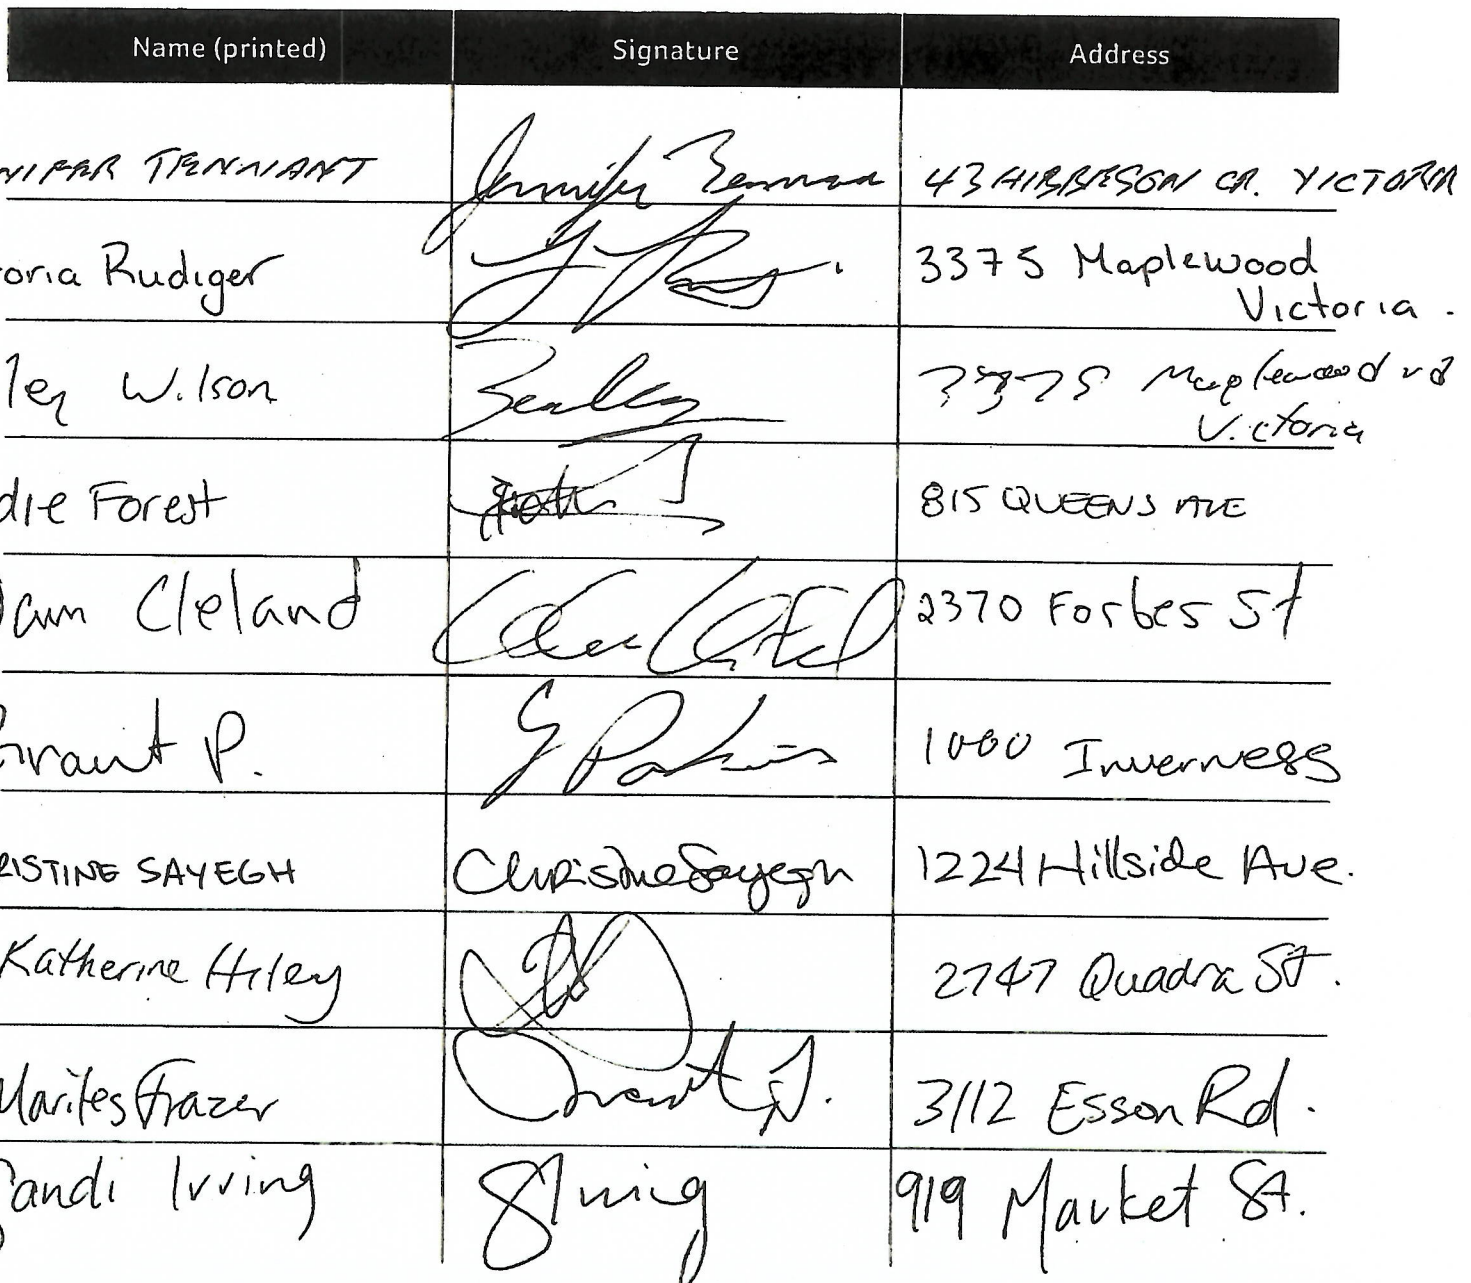 Name (printed) Signature Address
NIFER TENNANT Jennifer Tennant 43 HIBBERSON CR. VICTORIA
oria Rudiger 3375 Maplewood
Victoria.
ley Wilson 3375 Maplewood rd
Victoria
die Forest 815 QUEENS AVE
am Cleland 2370 Forbes St
Grant P. G Parkins 1000 Inverness
RISTINE SAYEGH Christine Sayegh 1224 Hillside Ave.
Katherine Hiley 2747 Quadra St.
Marites Frazer 3112 Esson Rd.
Sandi Irving SIrving 919 Market St.